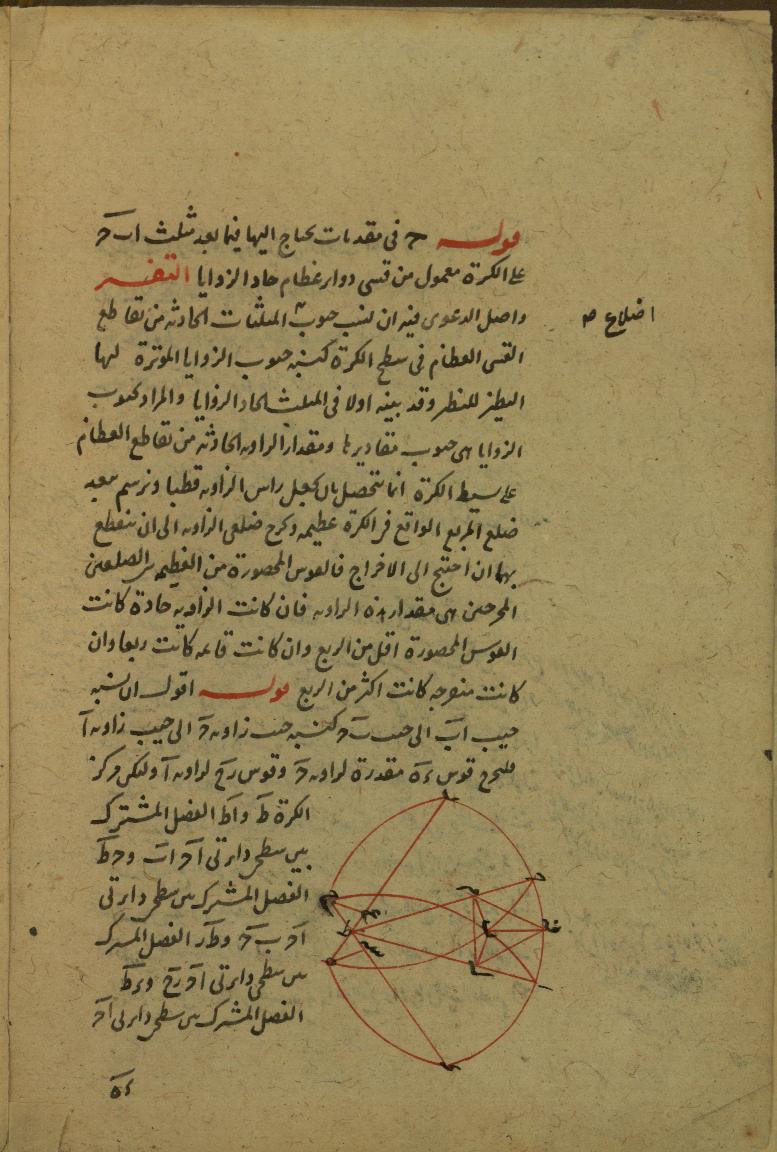 قوله ح في مقدمات يحتاج اليها فيما بعد مثلث ا ب ح
على الكرة معمول من قسى دوائر عظام حاد الزوايا التفسير
واصل الدعوى فيه ان نسب جيوب المثلثات الحادثة من تقاطع
اضلاع صح
القسى العظام في سطح الكرة كنسبة جيوب الزوايا الموترة لها
النظير للنظير وقد بينه اولا في المثلث الحاد الزوايا والمراد بجيوب
الزوايا هي جيوب مقاديرها ومقدار الزاوية الحادثة من تقاطع العظام
على بسيط الكرة انما يتحصل بان يجعل راس الزاوية قطبا ونرسم ببعد
ضلع المربع الواقع في الكرة عظيمة ونخرج ضلعي الزاوية الى ان ينقطع
بهما ان احتيج الى الاخراج فالقوس المحصورة من العظيمة بين الضلعين
المخرجين هي مقدار هذه الزاوية فان كانت الزاوية حادة كانت
القوس المحصورة اقل من الربع وان كانت قائمة كانت ربعا وان
كانت منفرجة كانت اكثر من الربع قوله اقول ان نسبة
جيب اب الى جيب ب ح كنسبة جيب زاوية ح الى جيب زاوية ا
فليخرج قوس ء ه مقدرة لزاوية ح وقوس ر ح لزاوية ا وليكن مركز
الكرة ط و ا ط الفصل المشترك
بين سطحي دائرتي ا ح ا ب و ح ط
الفصل المشترك بين سطحي دائرتي
ا ح ب ح و ط ر الفصل المشترك
بين سطحي دائرتي ا ح ر ح و ء ط
الفصل المشترك بين سطحي دائرتي ا ح
ء ه